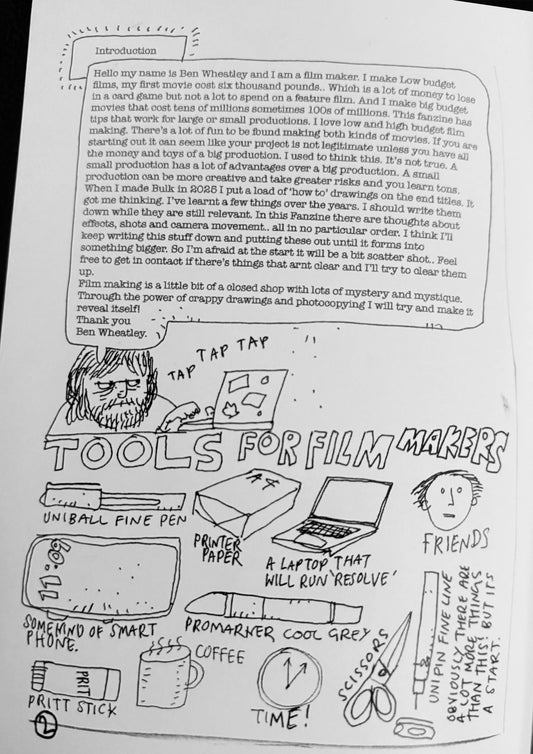 Introduction
Hello my name is Ben Wheatley and I am a film maker. I make Low budget
films, my first movie cost six thousand pounds.. Which is a lot of money to lose
in a card game but not a lot to spend on a feature film. And I make big budget
movies that cost tens of millions sometimes 100s of millions. This fanzine has
tips that work for large or small productions. I love low and high budget film
making. There's a lot of fun to be found making both kinds of movies. If you are
starting out it can seem like your project is not legitimate unless you have all
the money and toys of a big production. I used to think this. It's not true. A
small production has a lot of advantages over a big production. A small
production can be more creative and take greater risks and you learn tons.
When I made Bulk in 2025 I put a load of 'how to' drawings on the end titles. It
got me thinking. I've learnt a few things over the years. I should write them
down while they are still relevant. In this Fanzine there are thoughts about
effects, shots and camera movement.. all in no particular order. I think I'll
keep writing this stuff down and putting these out until it forms into
something bigger. So I'm afraid at the start it will be a bit scatter shot.. Feel
free to get in contact if there's things that arnt clear and I'll try to clear them
up.
Film making is a little bit of a closed shop with lots of mystery and mystique.
Through the power of crappy drawings and photocopying I will try and make it
reveal itself!
Thank you
Ben Wheatley.
TAP TAP TAP
TOOLS FOR FILM MAKERS
UNIBALL FINE PEN
A4
PRINTER
PAPER
A LAPTOP THAT
WILL RUN 'RESOLVE'
FRIENDS
SOMEKIND OF SMART
PHONE.
PROMARKER COOL GREY
PRITT
PRITT STICK
COFFEE
TIME!
SCISSORS
UNIPIN FINE LINE
OBVIOUSLY THERE ARE
A LOT MORE THINGS
THAN THIS! BUT ITS
A START.
2